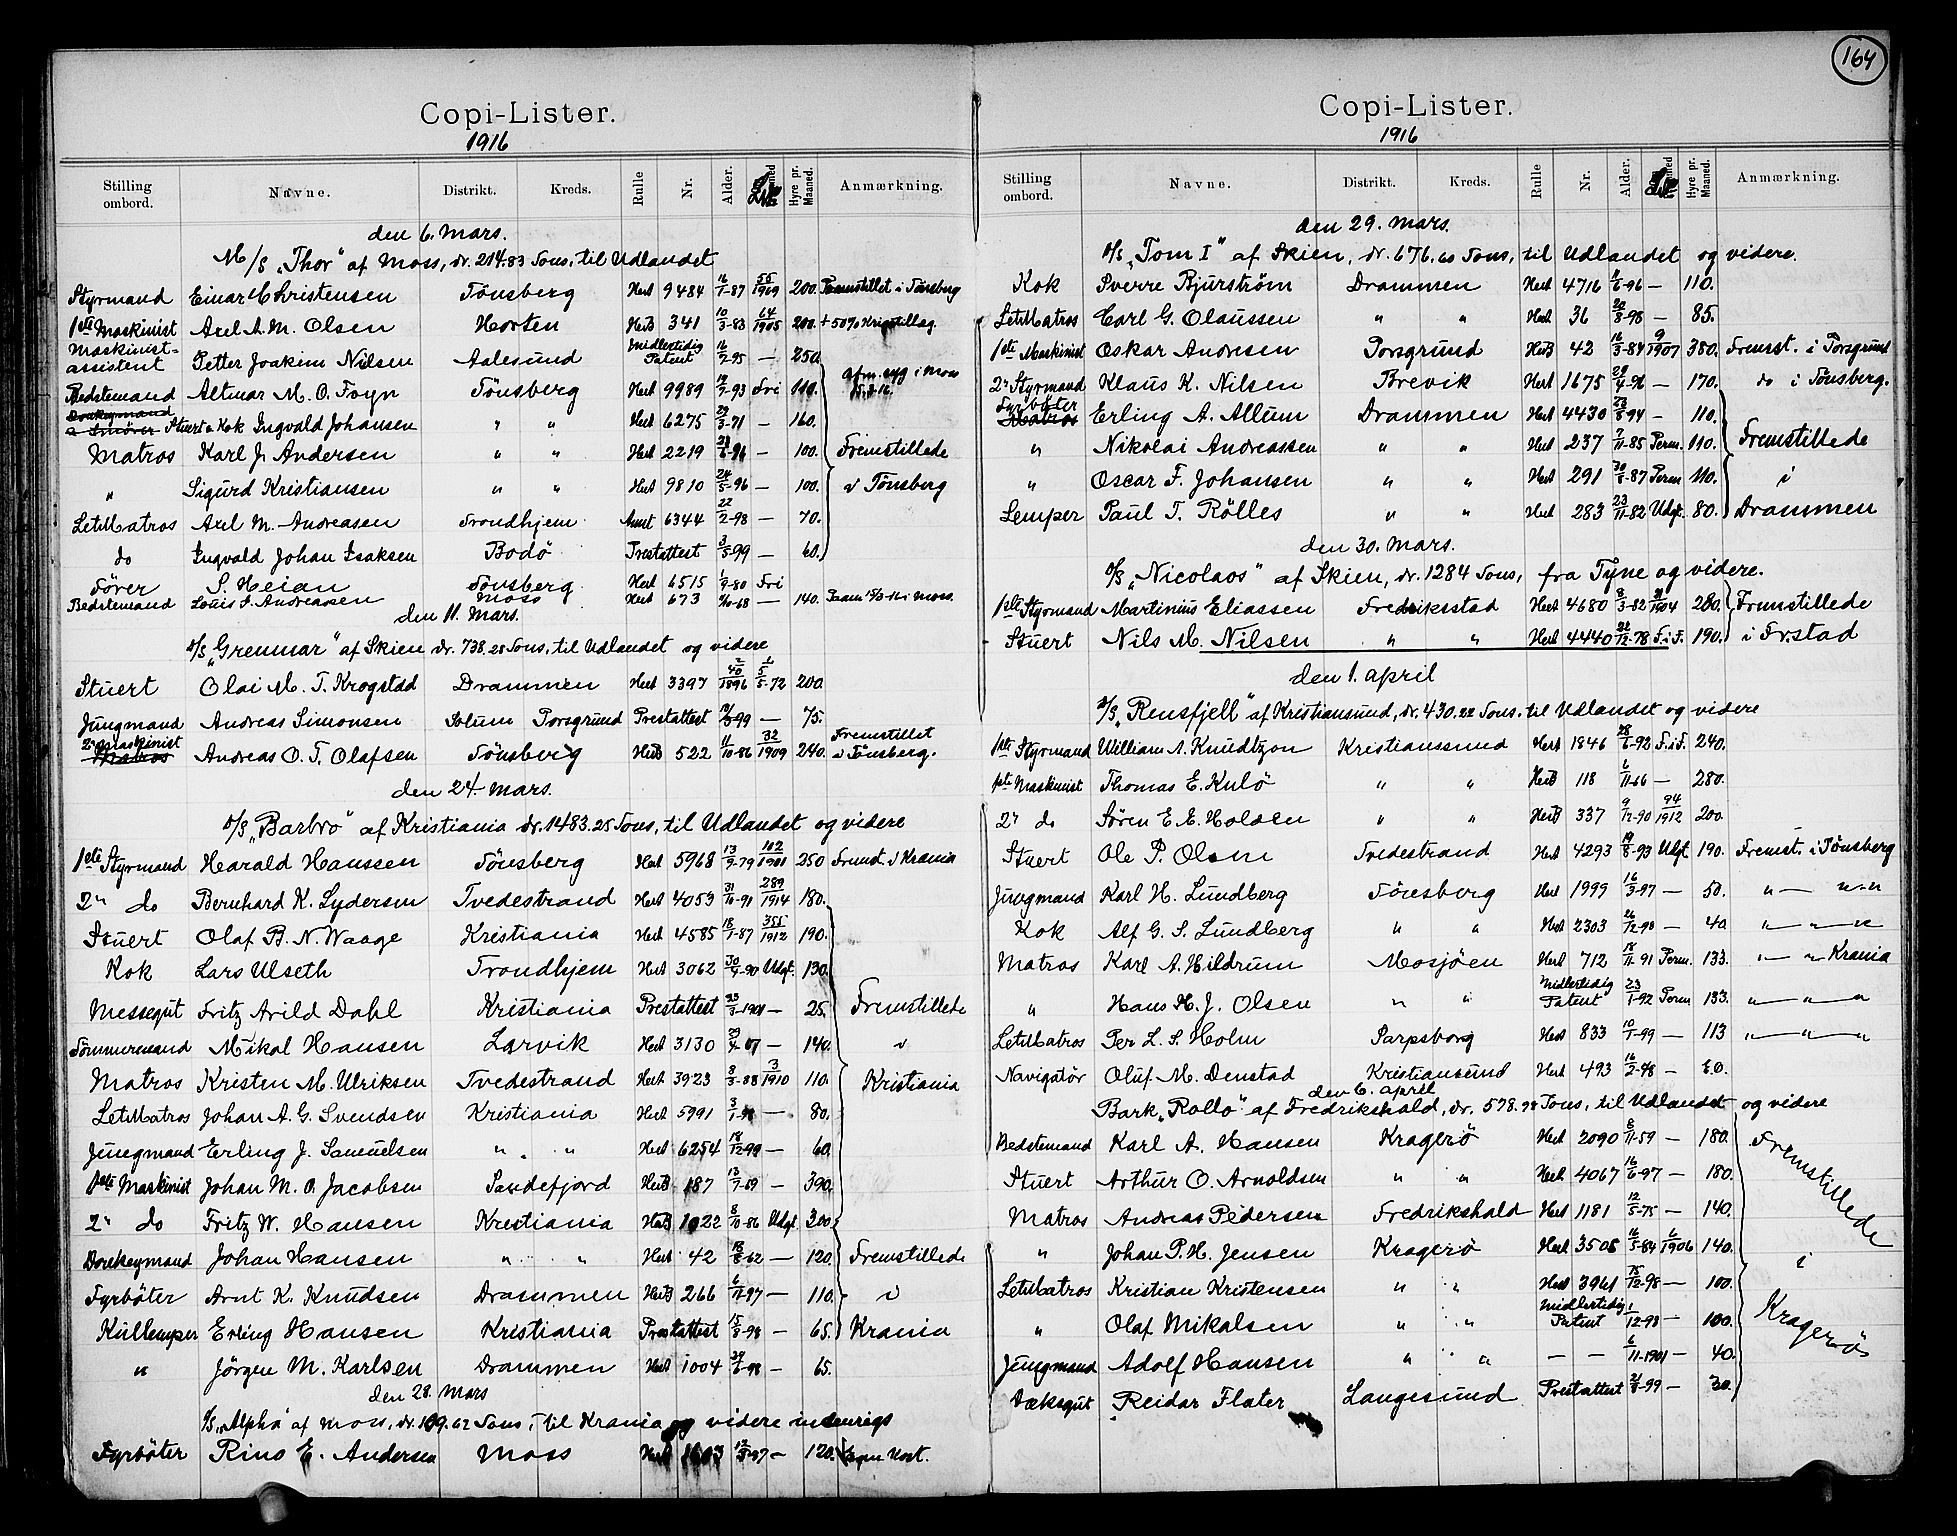 164
Copi-Lister.
1916
Stilling ombord. Navne. Distrikt. Kreds. Rulle Nr. Alder. Hyre pr. Maaned. Anmærkning.
den 6. Mars.
M/S „Thor" af Moss, dr. 214.83 Tons, til Udlandet
Styrmand Einar Christensen Tönsberg Hert 9484 16/1-87 55/1909 200. Fremstillet i Tönsberg
1ste Maskinist Axel A. M. Olsen Horten HertB 341 10/3-83 64/1905 200. + 50% Krigstillæg.
Maskinist-assistent Petter Joakim Nilsen Aalesund Midlertidig Patent 16/7-95 — 250
Bedstemand Altmar M. O. Foyn Tönsberg Hert 9989 19/7-93 Fri 110. afm. syg i Moss
Donkeymand a Smörer Stuert a Kok Ingvald Johansen " " Hert 6275 29/3-71 — 160.
Matros Karl J. Andersen " " Hert 2219 28/6-96 — 100. Fremstillede
" Sigurd Kristiansen " " Hert 9810 24/5-96 — 100. i Tönsberg
LetMatros Axel M. Andreasen Trondhjem Annt 6344 22/2-98 — 70.
do Ingvald Johan Isaksen Bodö Prestattest 3/5-99 — 60.
Förer S. Heian Tönsberg Hert 6515 1/9-80 Fri
Bedstemand Louis F. Andreassen Moss Hert 673 2/10-68 — 140. Paam 15/3-16 i Moss.
den 11. Mars.
D/S „Grenmar" af Skien dr. 738.28 Tons, til Udlandet og videre
Stuert Olai M. T. Krogstad Drammen Hert 3397 40/1896 5/5-72 200.
Jungmand Andreas Simonsen Solum Porsgrund Prestattest 10/5-99 — 75.
2n Maskinist Matros Andreas O. T. Olafsen Tönsberg HertB 522 11/10-86 32/1909 240. Fremstillet i Tönsberg.
den 24. Mars.
D/S „Barbro" af Kristiania dr. 1483.25 Tons, til Udlandet og videre
1ste Styrmand Harald Hanssen Tönsberg Hert 5968 13/9-79 102/1901 250 Fremst. i Krania
2n do Bernhard K. Lydersen Tvedestrand Hert 4053 31/10-91 289/1914 180.
Stuert Olaf B. N. Waage Kristiania Hert 4585 18/1-87 355/1912 190.
Kok Lars Ulseth Trondhjem Hert 3062 30/4-90 Udgt. 130.
Messegut Fritz Arild Dahl Kristiania Prestattest 23/3-1901 — 25. Fremstillede
Tömmermand Mikal Hansen Larvik Hert 3130 29/4-67 — 140. i
Matros Kristen M. Ulriksen Tvedestrand Hert 3923 8/3-88 3/1910 110. Kristiania
LetMatros Johan A. G. Svendsen Kristiania Hert 5991 3/1-98 — 80.
Jungmand Erling J. Samuelsen " " Hert 6254 18/12-99 — 60.
1ste Maskinist Johan M. O. Jacobsen Sandefjord HertB 187 13/7-69 — 390.
2n do Fritz W. Hansen Kristiania HertB 1022 8/10-86 Udgt. 300.
Donkeymand Johan Hansen " " Hert 42 18/8-62 — 120. Fremstillede
Fyrböter Arnt K. Knudsen Drammen HertB 266 6/11-97 — 110. i
Kullemper Erling Hansen Kristiania Prestattest 15/8-98 — 65. Krania
" Jörgen M. Karlsen Drammen Hert 1004 29/6-98 — 65.
den 28. Mars
D/S „Alpha" af Moss, dr. 109.62 Tons, til Krania og videre indenrigs
Fyrböter Rino E. Andersen Moss Hert 1603 12/8-97 — 120. Egen Kost.
Copi-Lister.
1916
Stilling ombord. Navne. Distrikt. Kreds. Rulle Nr. Alder. Hyre pr. Maaned. Anmærkning.
den 29. Mars.
D/S „Tom I" af Skien, dr. 676.60 Tons, til Udlandet og videre.
Kok Sverre Bjurström Drammen Hert 4716 11/6-96 — 110.
LetMatros Carl G. Olaussen " " Hert 36 20/8-98 — 85.
1ste Maskinist Oskar Andresen Porsgrund HertB 42 16/3-84 9/1907 380. Fremst. i Porsgrund
2n Styrmand Klaus K. Nilsen Brevik Hert 1675 29/4-96 — 170. do i Tönsberg.
Fyrböter Matros Erling A. Allum Drammen Hert 4430 23/8-94 — 110.
" Nikolai Andreassen " " Hert 237 7/11-85 Perm. 110. Fremstillede
" Oscar F. Johansen " " Hert 291 30/8-87 Perm 110. i
Lemper Paul T. Rölles " " Hert 283 23/11-82 Udgt. 80. Drammen
den 30. Mars.
D/S „Nicolaos" af Skien, dr. 1284 Tons, fra Tyne og videre.
1ste Styrmand Martinius Eliassen Fredriksstad Hert 4680 8/3-82 31/1904 280. Fremstillede
Stuert Nils M. Nilsen " " Hert 4440 22/12-78 F. i F. 190. i Fr.stad
den 1. April
D/S „Rensfjell" af Kristiansund, dr. 430.22 Tons. til Udlandet og videre
1ste Styrmand William A. Knudtzon Kristianssund Hert 1846 28/6-92 F. i F. 240.
1ste Maskinist Thomas E. Kulö " " HertB 118 6/11-66 — 280.
2n do Sören E. E. Holden " " HertB 337 9/12-90 94/1912 200.
Stuert Ole P. Olsen Tvedestrand Hert 4293 19/8-93 Udgt 190. Fremst. i Tönsberg
Jungmand Karl H. Lundberg Tönsberg Hert 1999 16/3-97 — 50. " — " "
Kok Alf G. S. Lundberg " " Hert 2303 26/12-98 — 40 " — " "
Matros Karl A. Hildrum Mosjöen Hert 712 18/11-91 Perm. 133. " — " Krania
" Hans H. J. Olsen " " Midlertidig Patent 23/1-92 Perm 133. " — " "
LetMatros Per L. S. Holm Sarpsborg Hert 833 10/1-99 — 113 " — " "
Navigatör Oluf M. Denstad Kristiansund Hert 493 16/2-48 —
den 6. April
Bark „Rollo" af Fredrikshald, dr. 578.98 Tons, til Udlandet og videre
Bedstemand Karl A. Hansen Kragerö Hert 2090 8/11-59 — 180. Fremstillede
Stuert Arthur O. Arnoldsen " " Hert 4067 16/6-97 — 180.
Matros Andreas Pedersen Fredrikshald Hert 1181 12/5-75 — 140.
" Johan P. H. Jensen Kragerö Hert 3508 16/5-84 6/1906 140. i
LetMatros Kristian Kristensen " " Hert 3961 15/12-98 — 100.
" Olaf Mikalsen " " Midlertidig Patent 1/12-98 — 100. Kragerö
Jungmand Adolf Hansen " " — — 6/11-1901 — 40.
Dæksgut Reidar Flater Langesund Prestattest 21/8-99 — 30.